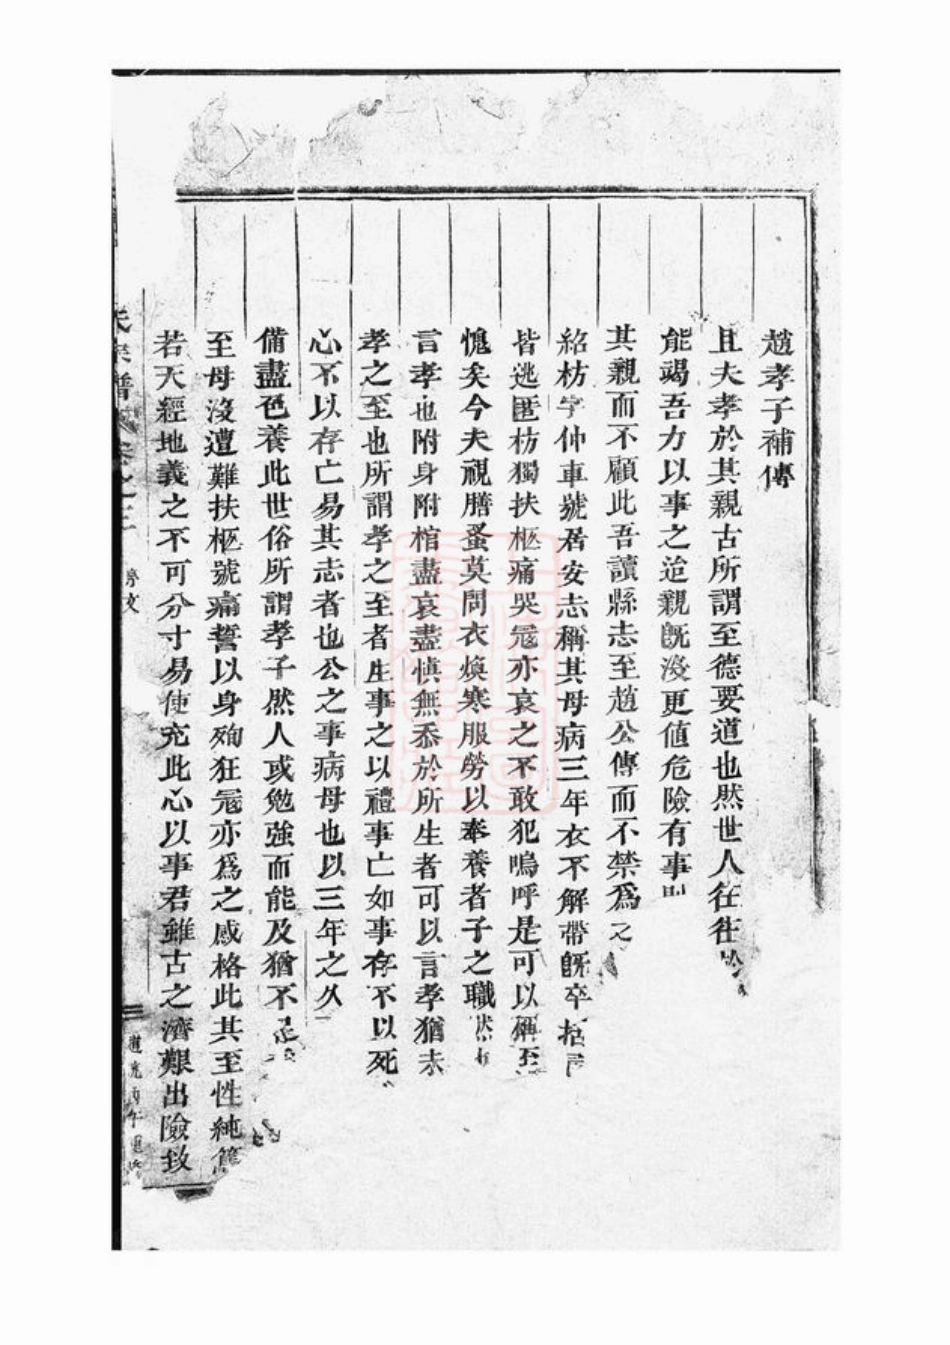 趙孝子補傳
且夫孝於其親古所謂至德要道也然世人往往
能竭吾力以事之迨親旣沒更値危險有事
其親而不顧此吾讀縣志至趙公傳而不禁爲
紹枋字仲車號居安志稱其母病三年衣不解帶旣卒
皆逃匿枋獨扶柩痛哭寇亦哀之不敢犯嗚呼是可以稱至
愧矣今夫視膳蚤莫問衣燠寒服勞以奉養者子之職然
言孝也附身附棺盡哀盡愼無忝於所生者可以言孝猶未
孝之至也所謂孝之至者生事之以禮事亡如事存不以死
心不以存亡易其志者也公之事病母也以三年之久
備盡色養此世俗所謂孝子然人或勉強而能及猶不足
至母沒遭難扶柩號痛誓以身殉狂寇亦爲之感格此其至性純篤
若天經地義之不可分寸易使充此心以事君雖古之濟艱出險致
氏宗譜 卷之三 序文 道光丙午重修